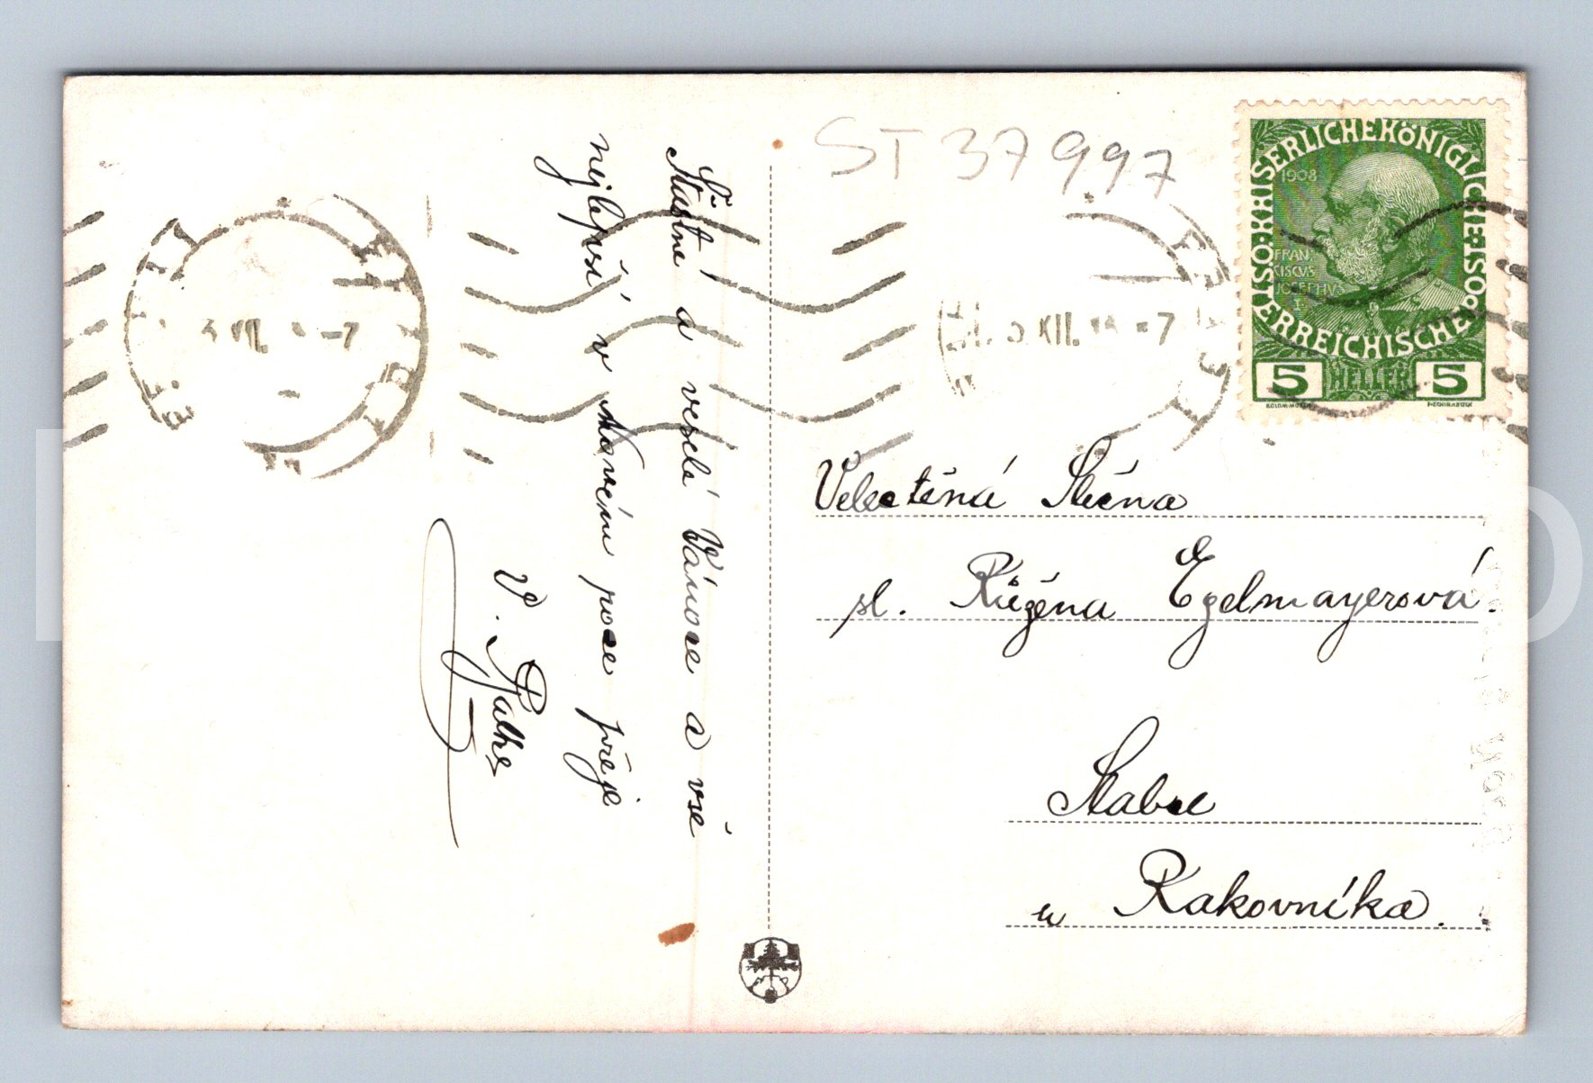 Šťastné a veselé Vánoce a vše
nejlepší v Novém roce přeje
V. Rathe
ST 37997
KAISERLICHE KÖNIGLICHE
ÖSTERREICHISCHE
1908
FRAN
CISCVS
JOSEPHVS
I.
5 HELLER 5
XII. -7
XII. -7
Velectěná Slečna
sl. Růžena Egelmayerová.
Stabce
u Rakovníka.